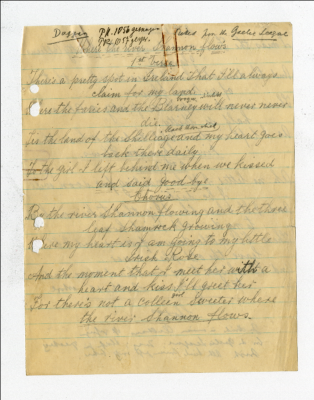 Where the river Shannon flows
1st Verse
There's a pretty spot in Ireland that I'll always
claim for my land
Where the faries and the Blarney will never never
die
Tis the land of the Shillalagh and my heart goes
back there daily
To the girl I left behind me when we kissed
and said good bye
Chorus
By the river Shannon flowing and the three
leaf shamrock growing
my heart is I am going to my little
Irish Rose
And the moment that I meet her with a
heart and kiss I'll greet her
For there's not a colleen sweeter where
the river Shannon flows.